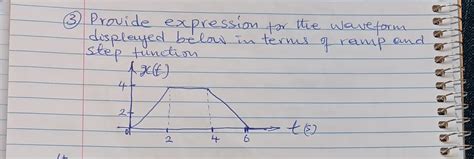 ③ Provide expression for the waveform
displayed below in terms of ramp and
step function
x(t)
4
2
0 2 4 6 t(s)